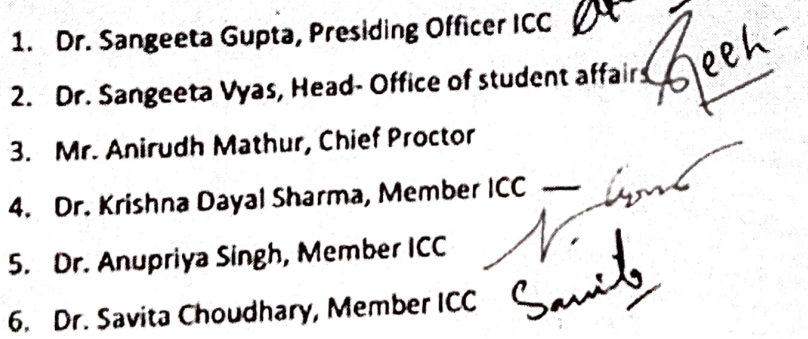 1. Dr. Sangeeta Gupta, Presiding Officer ICC
2. Dr. Sangeeta Vyas, Head- Office of student affairs
3. Mr. Anirudh Mathur, Chief Proctor
4. Dr. Krishna Dayal Sharma, Member ICC —
5. Dr. Anupriya Singh, Member ICC
6. Dr. Savita Choudhary, Member ICC